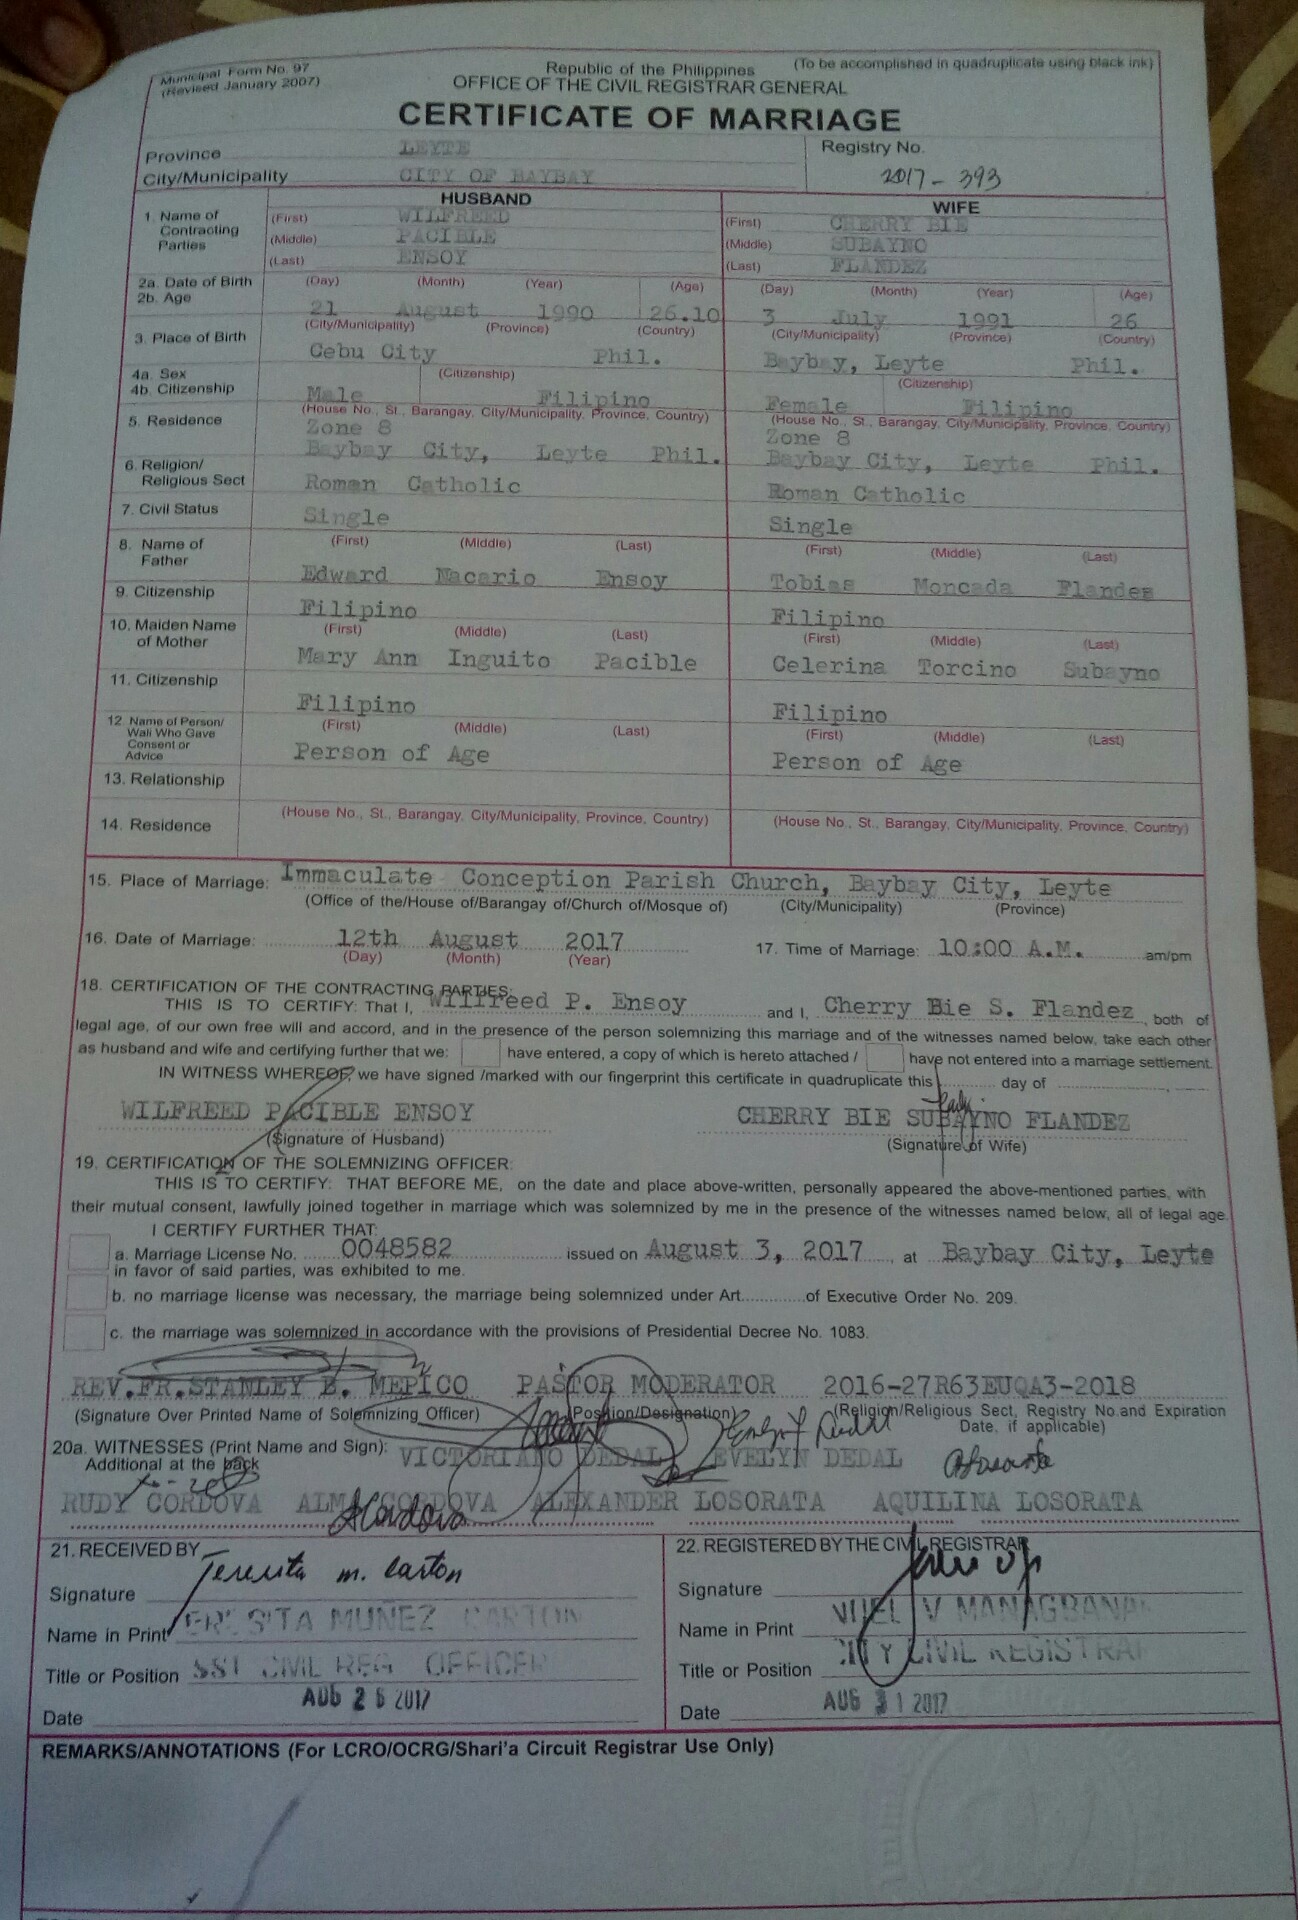 Municipal Form No. 97
(Revised January 2007)
(To be accomplished in quadruplicate using black ink)
Republic of the Philippines
OFFICE OF THE CIVIL REGISTRAR GENERAL
CERTIFICATE OF MARRIAGE
Province LEYTE
City/Municipality CITY OF BAYBAY
Registry No.
2017-393
HUSBAND WIFE
1. Name of Contracting Parties
(First) WILFREED (First) CHERRY BIE
(Middle) PACIBLE (Middle) SUBAYNO
(Last) ENSOY (Last) FLANDEZ
2a. Date of Birth (Day) (Month) (Year) (Age) (Day) (Month) (Year) (Age)
2b. Age 21 August 1990 26.10 3 July 1991 26
3. Place of Birth (City/Municipality) (Province) (Country) (City/Municipality) (Province) (Country)
Cebu City Phil. Baybay, Leyte Phil.
4a. Sex (Citizenship) (Citizenship)
4b. Citizenship Male Filipino Female Filipino
5. Residence (House No., St., Barangay, City/Municipality, Province, Country) (House No., St., Barangay, City/Municipality, Province, Country)
Zone 8 Zone 8
Baybay City, Leyte Phil. Baybay City, Leyte Phil.
6. Religion/ Religious Sect Roman Catholic Roman Catholic
7. Civil Status Single Single
8. Name of Father (First) (Middle) (Last) (First) (Middle) (Last)
Edward Macario Ensoy Tobias Moncada Flandez
9. Citizenship Filipino Filipino
10. Maiden Name of Mother (First) (Middle) (Last) (First) (Middle) (Last)
Mary Ann Inguito Pacible Celerina Torcino Subayno
11. Citizenship Filipino Filipino
12. Name of Person/ Wali Who Gave Consent or Advice (First) (Middle) (Last) (First) (Middle) (Last)
Person of Age Person of Age
13. Relationship
14. Residence (House No., St., Barangay, City/Municipality, Province, Country) (House No., St., Barangay, City/Municipality, Province, Country)
15. Place of Marriage: Immaculate Conception Parish Church, Baybay City, Leyte
(Office of the/House of/Barangay of/Church of/Mosque of) (City/Municipality) (Province)
16. Date of Marriage: 12th August 2017 17. Time of Marriage: 10:00 A.M. am/pm
(Day) (Month) (Year)
18. CERTIFICATION OF THE CONTRACTING PARTIES:
THIS IS TO CERTIFY: That I, Wilfreed P. Ensoy and I, Cherry Bie S. Flandez, both of
legal age, of our own free will and accord, and in the presence of the person solemnizing this marriage and of the witnesses named below, take each other
as husband and wife and certifying further that we: have entered, a copy of which is hereto attached / have not entered into a marriage settlement.
IN WITNESS WHEREOF, we have signed /marked with our fingerprint this certificate in quadruplicate this day of
WILFREED PACIBLE ENSOY CHERRY BIE SUBAYNO FLANDEZ
(Signature of Husband) (Signature of Wife)
19. CERTIFICATION OF THE SOLEMNIZING OFFICER:
THIS IS TO CERTIFY: THAT BEFORE ME, on the date and place above-written, personally appeared the above-mentioned parties, with
their mutual consent, lawfully joined together in marriage which was solemnized by me in the presence of the witnesses named below, all of legal age.
I CERTIFY FURTHER THAT:
a. Marriage License No. 0048582 issued on August 3, 2017, at Baybay City, Leyte
in favor of said parties, was exhibited to me.
b. no marriage license was necessary, the marriage being solemnized under Art. of Executive Order No. 209.
c. the marriage was solemnized in accordance with the provisions of Presidential Decree No. 1083.
REV.FR.STANLEY B. MEPICO PASTOR MODERATOR 2016-27R63EUQA3-2018
(Signature Over Printed Name of Solemnizing Officer) (Position/Designation) (Religion/Religious Sect, Registry No.and Expiration Date, if applicable)
20a. WITNESSES (Print Name and Sign): VICTORIANO DEDAL EVELYN DEDAL
Additional at the back
RUDY CORDOVA ALMA CORDOVA ALEXANDER LOSORATA AQUILINA LOSORATA
21. RECEIVED BY 22. REGISTERED BY THE CIVIL REGISTRAR
Signature Teresita M. Carton Signature
Name in Print TERESITA MUÑEZ CARTON Name in Print V MANAGBANAG
Title or Position CIVIL REG OFFICER Title or Position CITY CIVIL REGISTRAR
Date AUG 2017 Date AUG 31 2017
REMARKS/ANNOTATIONS (For LCRO/OCRG/Shari'a Circuit Registrar Use Only)